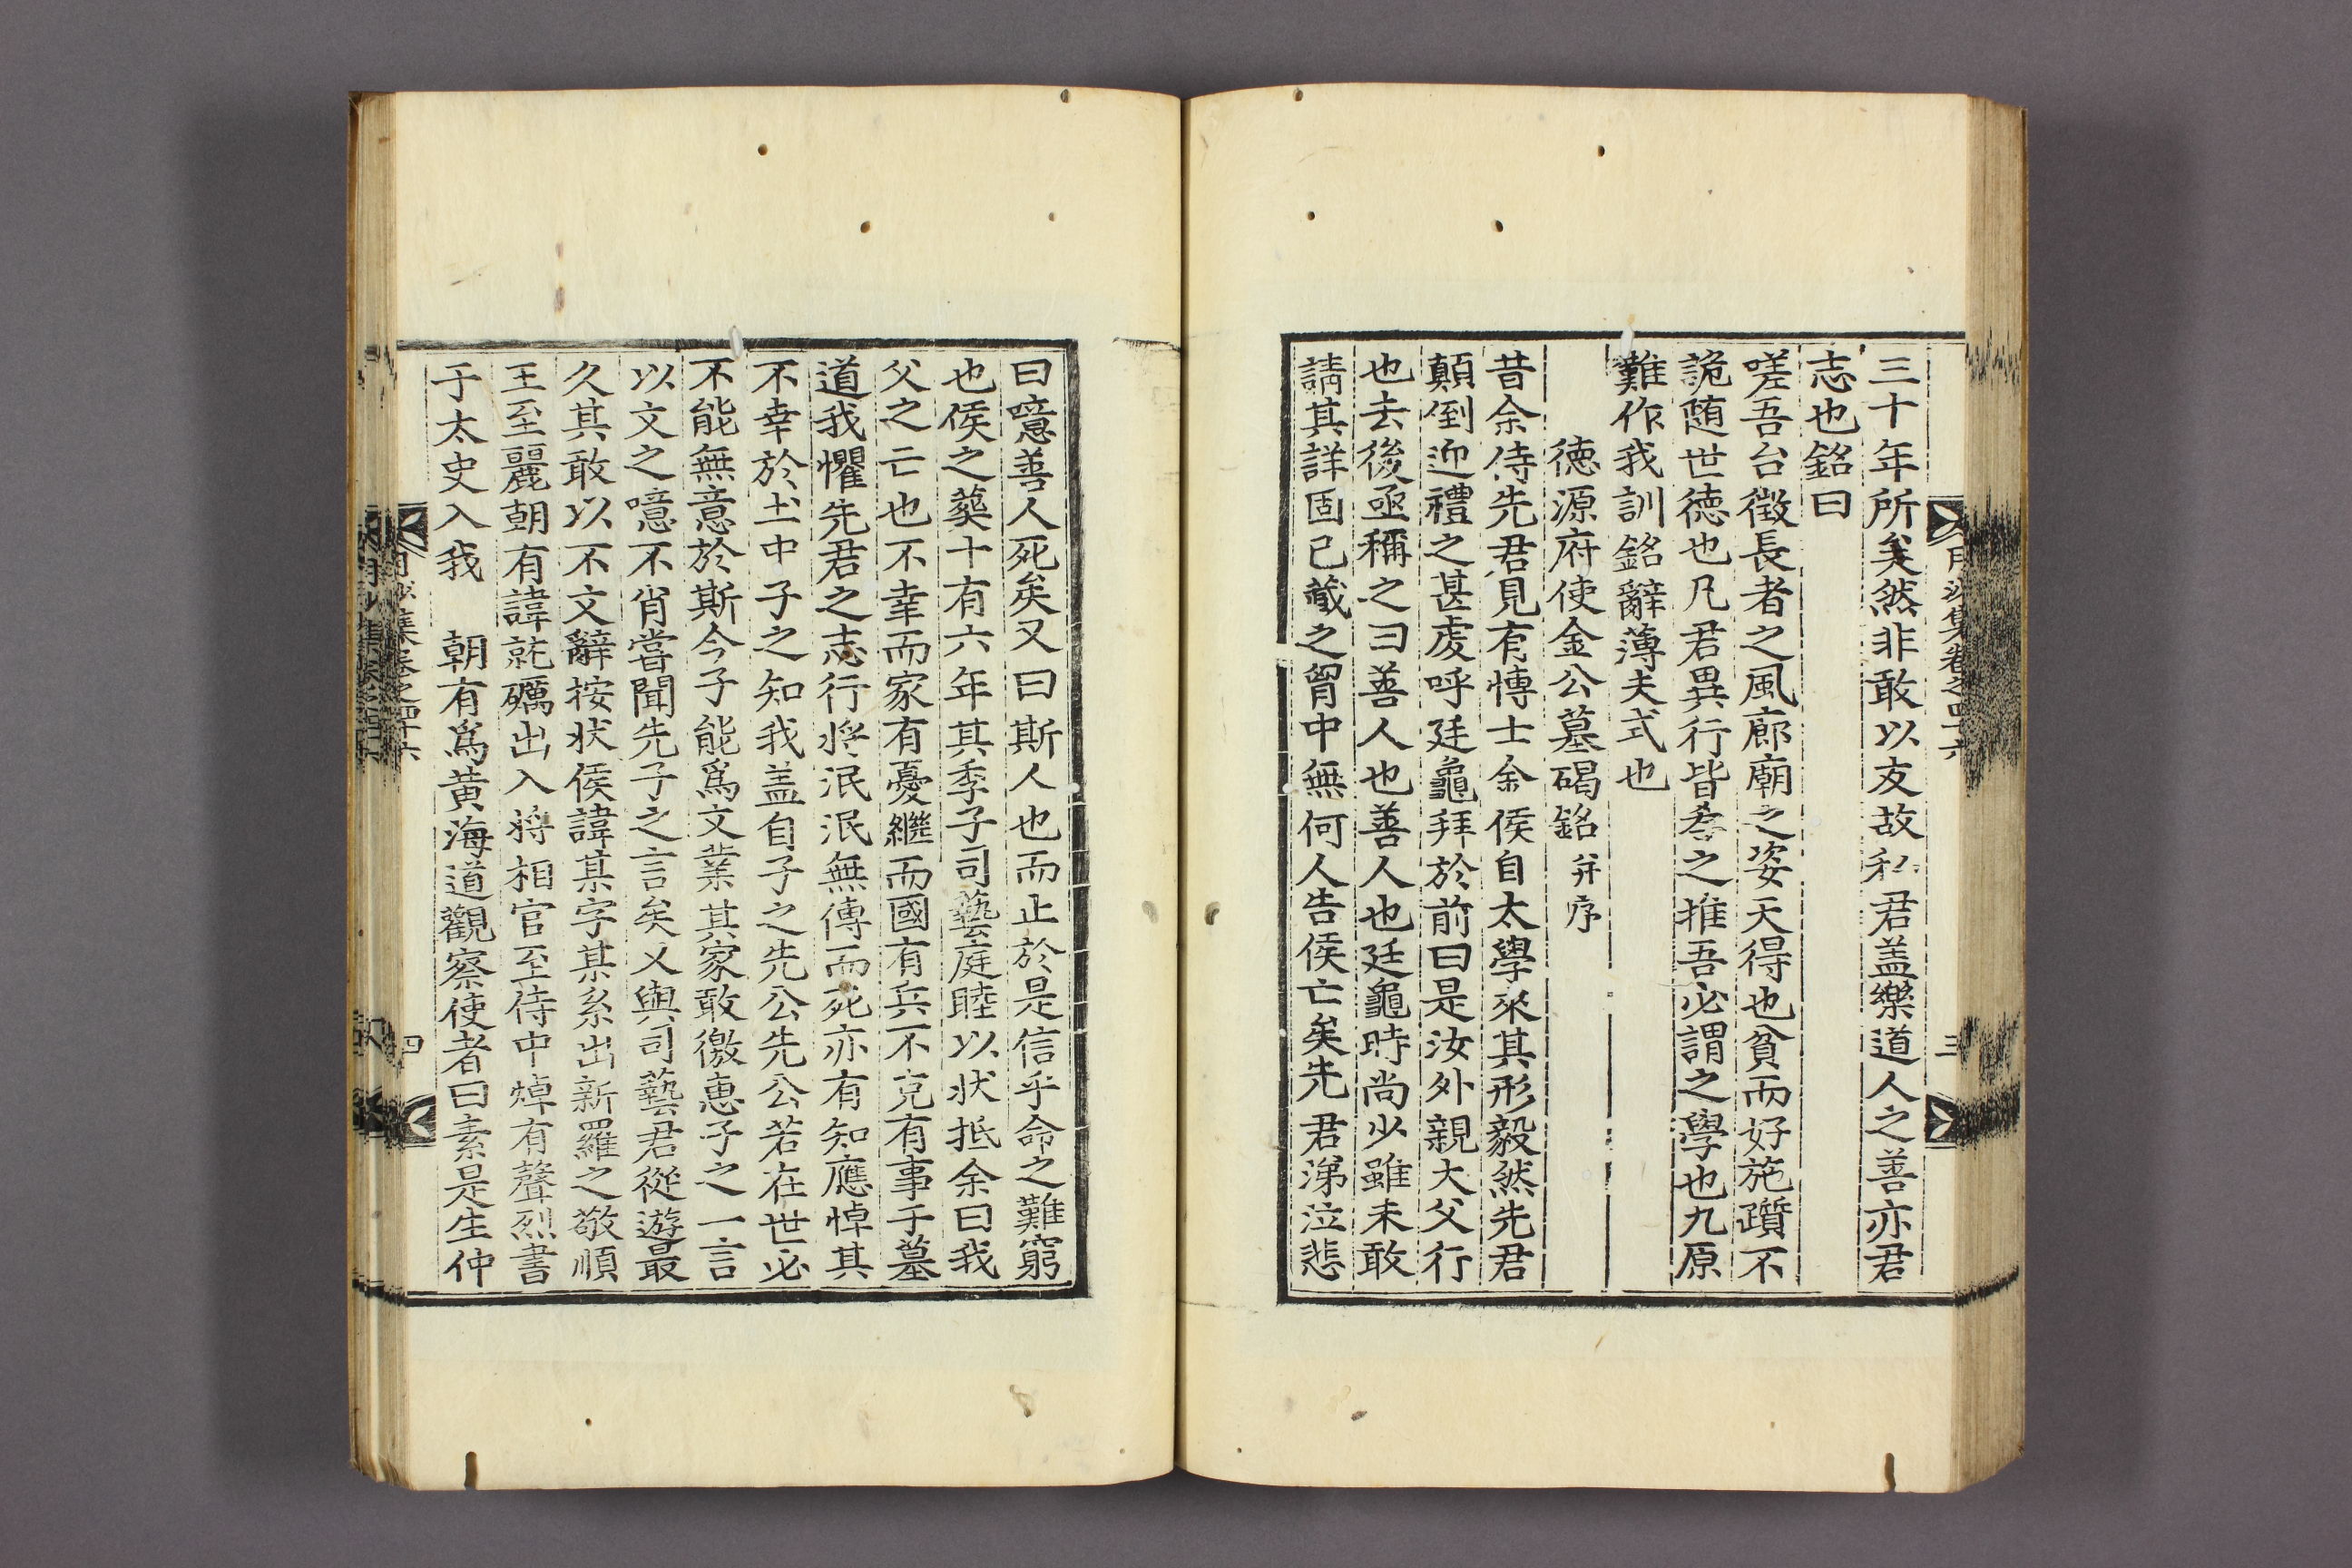 三十年所矣然非敢以友故私君盖樂道人之善亦君
志也銘曰
嗟吾台徵長者之風廊廟之姿天得也貧而好施躓不
詭随世徳也凡君異行皆孝之推吾必謂之學也九原
難作我訓銘辭薄夫式也
徳源府使金公墓碣銘 幷序
昔余侍先君見有愽士金侯自太學來其形毅然先君
顛倒迎禮之甚虔呼廷龜拜於前曰是汝外親大父行
也去後亟稱之曰善人也善人也廷龜時尚少雖未敢
請其詳固已藏之胷中無何人告侯亡矣先君涕泣悲
月沙集卷之四十六
三
曰噫善人死矣又曰斯人也而止於是信乎命之難窮
也侯之葬十有六年其季子司藝庭睦以状抵余曰我
父之亡也不幸而家有憂繼而國有兵不克有事于墓
道我懼先君之志行将泯泯無傳而死亦有知應悼其
不幸於土中子之知我盖自子之先公先公若在世必
不能無意於斯今子能爲文業其家敢徼惠子之一言
以文之噫不肖嘗聞先子之言矣又與司藝君從遊最
久其敢以不文辭按状侯諱某字某系出新羅之敬順
王至麗朝有諱䟽礪出入将相官至侍中焯有聲烈書
于太史入我　朝有爲黄海道觀察使者曰素是生仲
月沙集卷之四十六
四